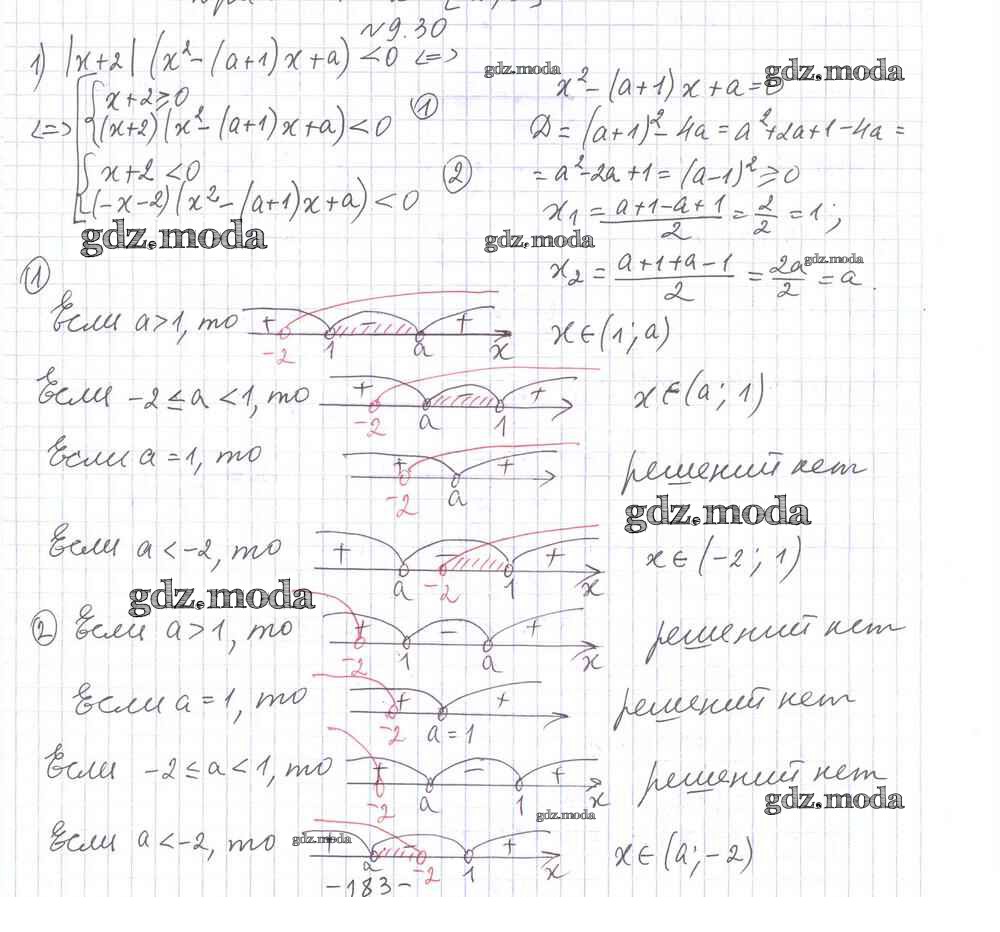 №9.30
1) |x+2| (x²-(a+1)x+a) <0 <=>
<=> x+2≥0
(x+2)(x²-(a+1)x+a)<0 ①
x+2<0
(-x-2)(x²-(a+1)x+a)<0 ②
x²-(a+1)x+a=0
D=(a+1)²-4a=a²+2a+1-4a=
=a²-2a+1=(a-1)²≥0
x₁=(a+1-a+1)/2=2/2=1;
x₂=(a+1+a-1)/2=2a/2=a.
gdz.moda
gdz.moda
gdz.moda
gdz.moda
gdz.moda
①
Если a>1, то + - + -2 1 a x x∈(1;a)
Если -2≤a<1, то + - + -2 a 1 x∈(a;1)
Если a=1, то + + -2 a решений нет
gdz.moda
Если a<-2, то + - + a -2 1 x x∈(-2;1)
gdz.moda
② Если a>1, то + - + -2 1 a x решений нет
Если a=1, то + + -2 a=1 решений нет
Если -2≤a<1, то + - + -2 a 1 x решений нет
gdz.moda
gdz.moda
Если a<-2, то + - + a -2 1 x x∈(a;-2)
gdz.moda
-183-